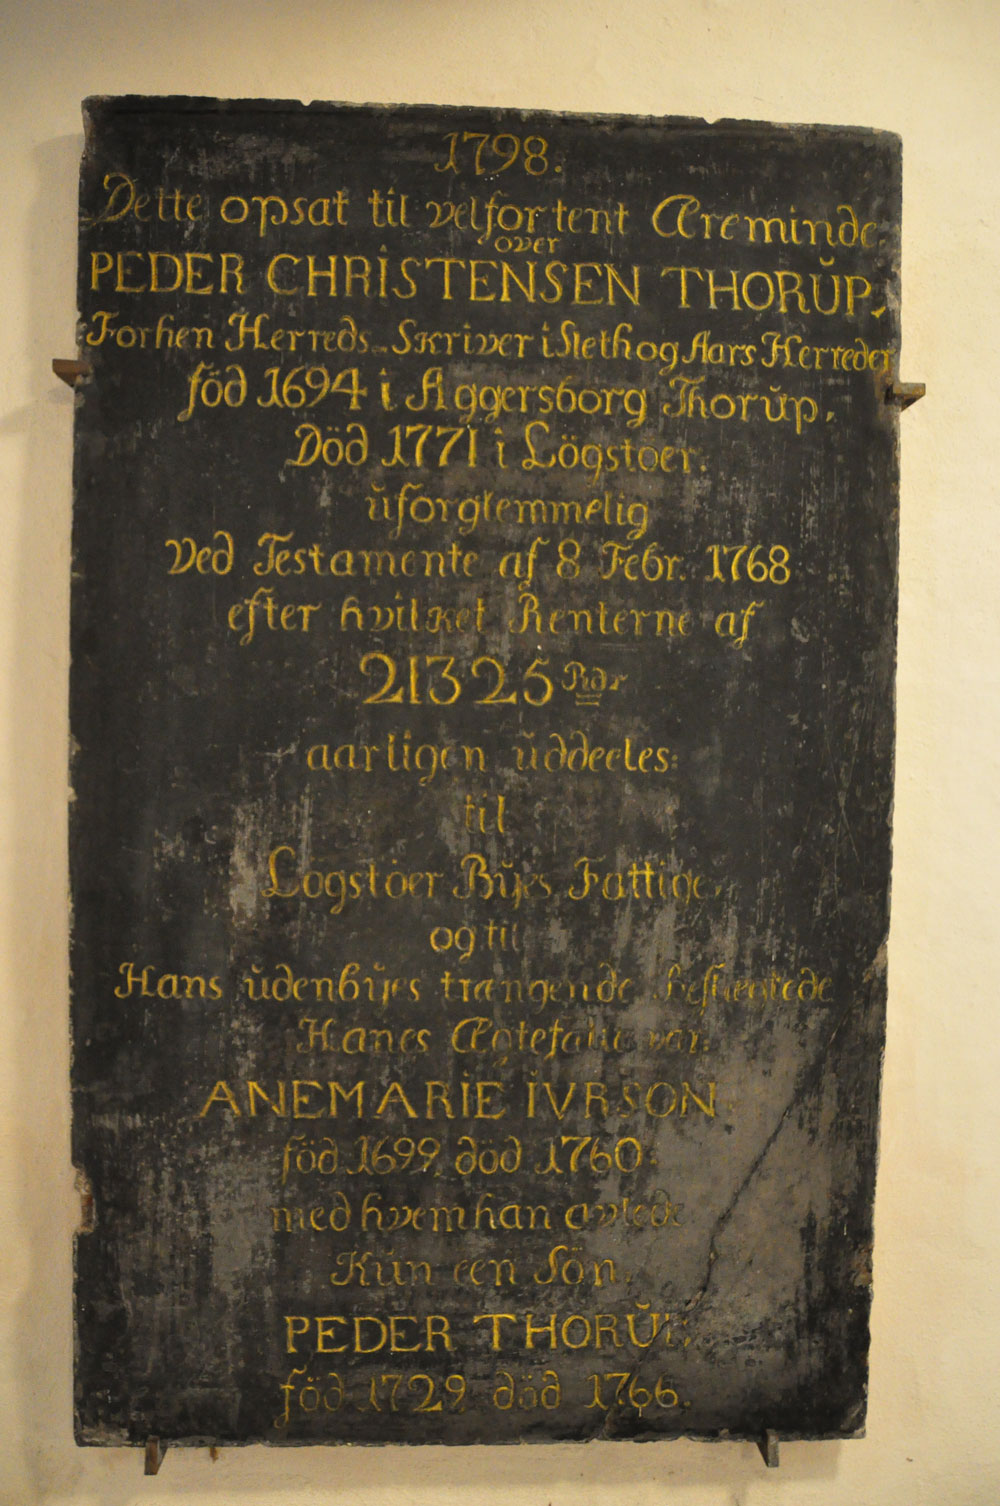 1798.
Dette opsat til velfortent Æreminde
over
PEDER CHRISTENSEN THORŬP,
Forhen Herreds-Skriver i Sleth og Aars Herreder
föd 1694 i Aggersborg Thorŭp,
Död 1771 i Lögstoer.
ŭforglemmelig
ved Testamente af 8 Febr. 1768
efter hvilket Renterne af
21325 Rdr
aarligen ŭddeeles:
til
Lögstöer Bÿes Fattige,
og til
Hans ŭdenbÿes trængende beslægtede
Hanes Ægtefälle var:
ANEMARIE IVRSON
föd 1699. död 1760.
med hvem han avlede
Kŭn een Sön.
PEDER THORŬP,
föd 1729 död 1766.